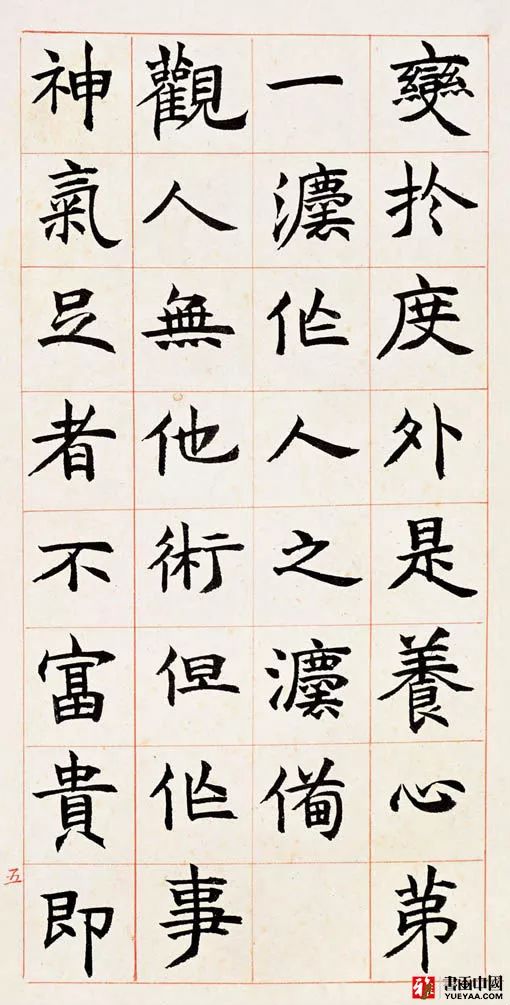 變扵度外是養心苐
一灋作人之灋備
觀人無他術但作事
神氣足者不富貴即
五
書画中国
YUEYAA.COM